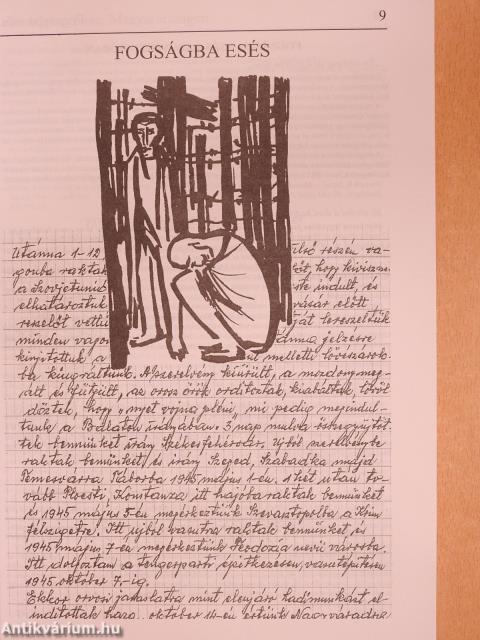 9
FOGSÁGBA ESÉS
Utánna 1-12 ülső részén va-
gonba raktak hogy kiviszne
a Szovjetunió este indult, és
elhatároztuk vásár előtt
reszelőt vettü ját lereszeltük
minden vagon ánna jelzésre
kinyitottuk a út melletti lövészárok-
ba kiugráltunk. A szerelvény kiürült, a mozdony meg-
állt és fütyült, az orosz őrök ordítoztak, kiabáltak, lövöl
döztek, hogy "nyet vojna pléni, mi pedig megindul-
tunk a Balaton irányában. 3 nap mulva összegyüjtöt
tek bennünket irány Székesfehérvár. Ujból szerelvénybe
raktak bennünket és irány Szeged, Szabadka majd
Temesvárra táborba 1945 május 1-én. 1 hét után to-
vább Ploesti, Konstanza itt hajóba raktak bennünket
és 1945 május 5-én megérkeztünk Szevasztopolba a Krim
félszigetre. Itt ujból vasutra raktak bennünket és
1945 május 7-én megérkeztünk Feodozia nevü városba.
Itt dolgoztam a tengerparti építkezésen, vasutépítésen
1945. október 7.-ig.
Ekkor orvosi javaslatra mint elenjáró hadimunkást el-
indítottak haza.. október 14-én értünk Nagyváradra
Antikvárium.hu